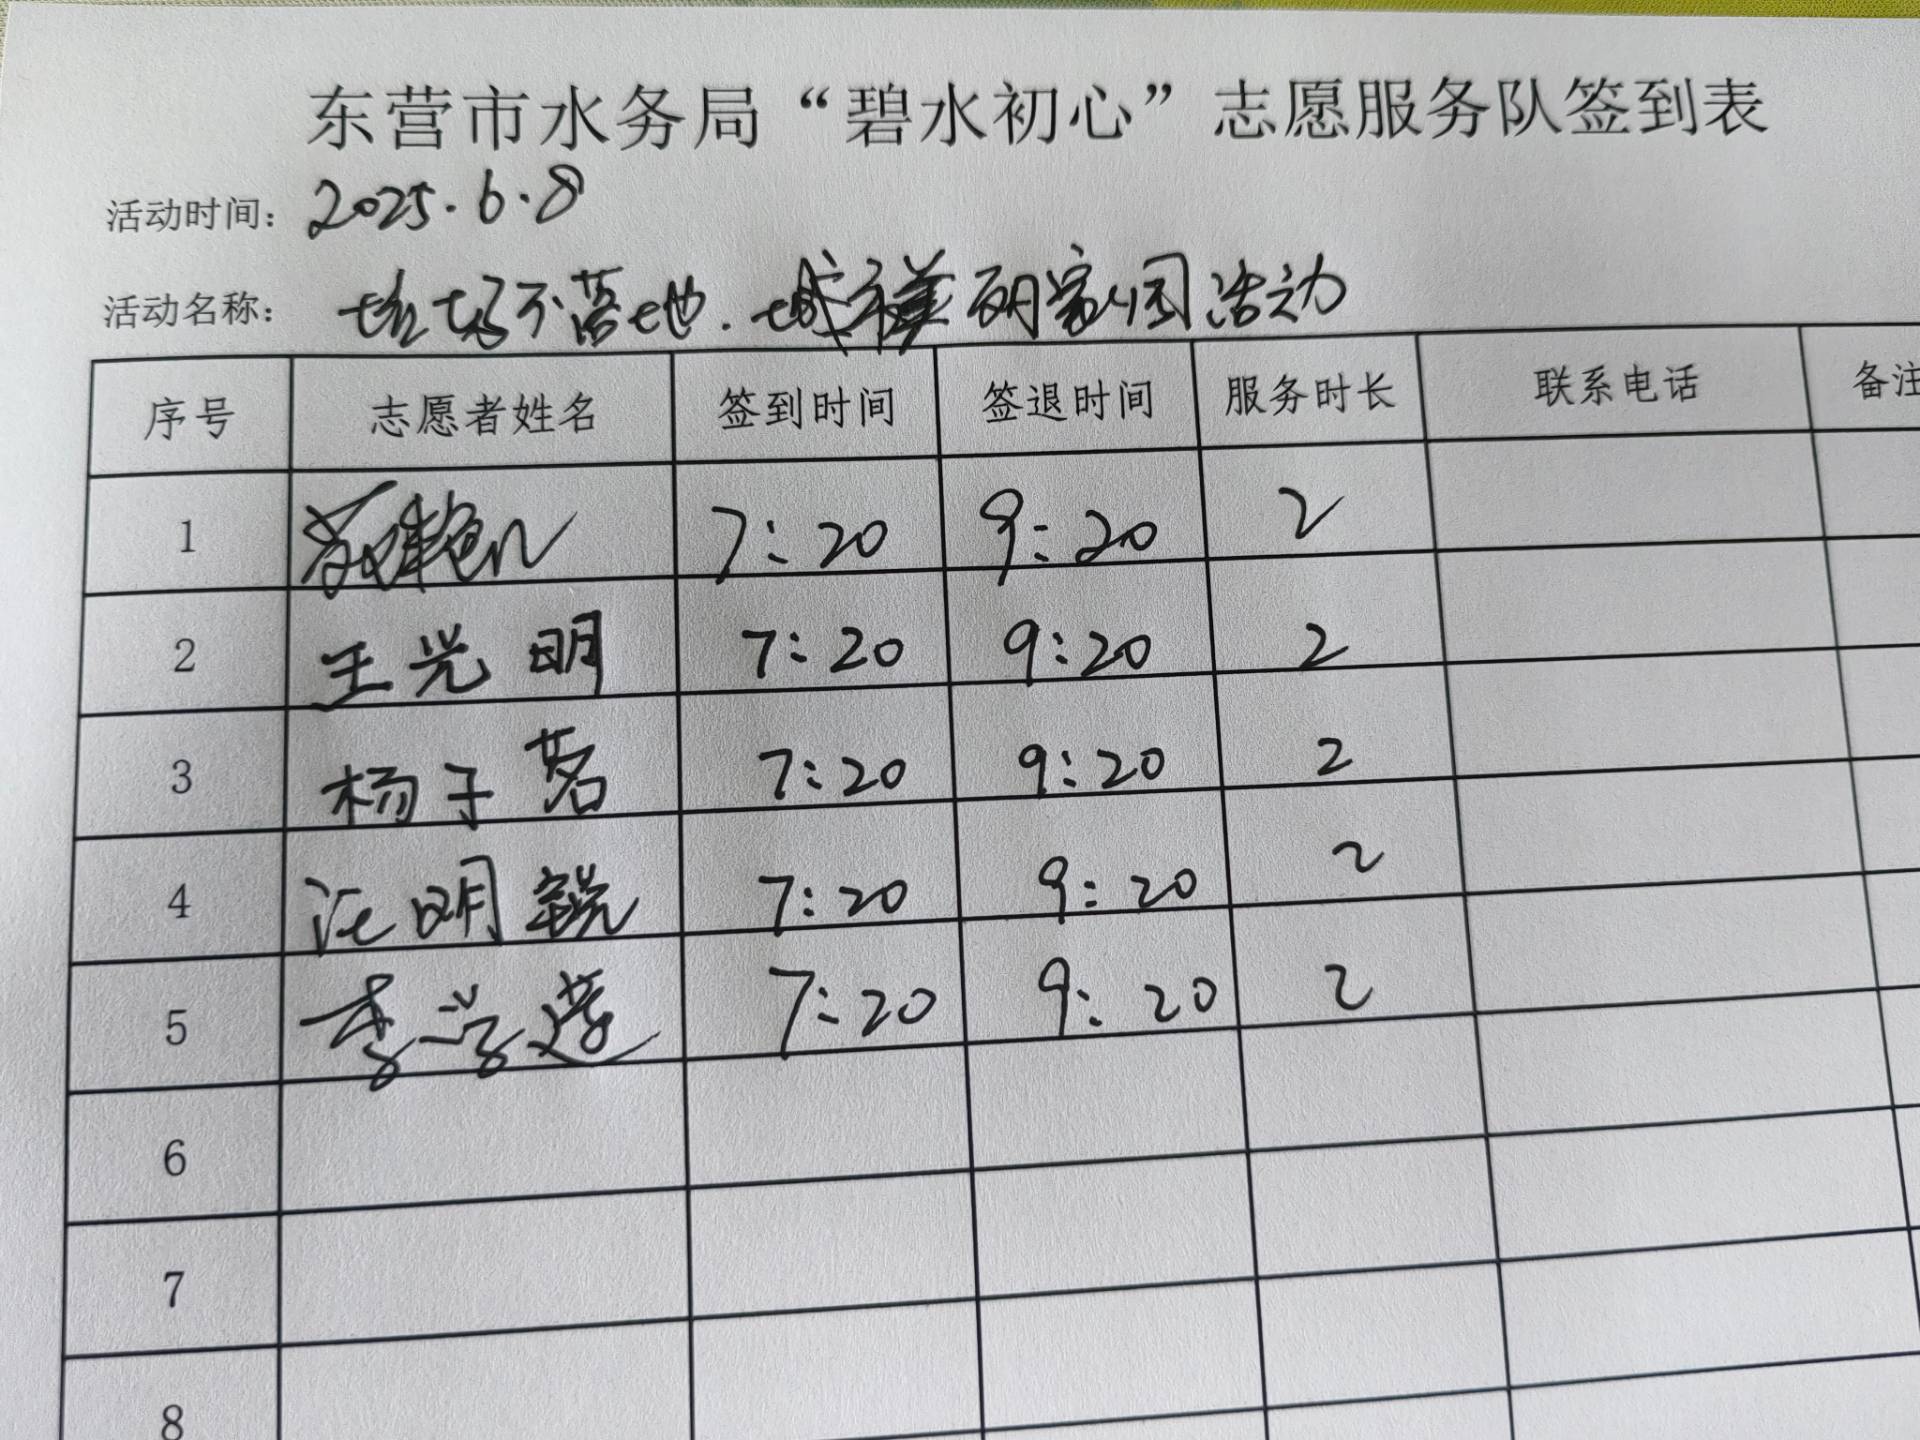 东营市水务局“碧水初心”志愿服务队签到表
活动时间：2025.6.8
活动名称：垃圾不落地.城 研家园活动
序号 志愿者姓名 签到时间 签退时间 服务时长 联系电话 备注
1 7:20 9:20 2
2 王光明 7:20 9:20 2
3 杨子茗 7:20 9:20 2
4 汪明锐 7:20 9:20 2
5 李学莲 7:20 9:20 2
6
7
8